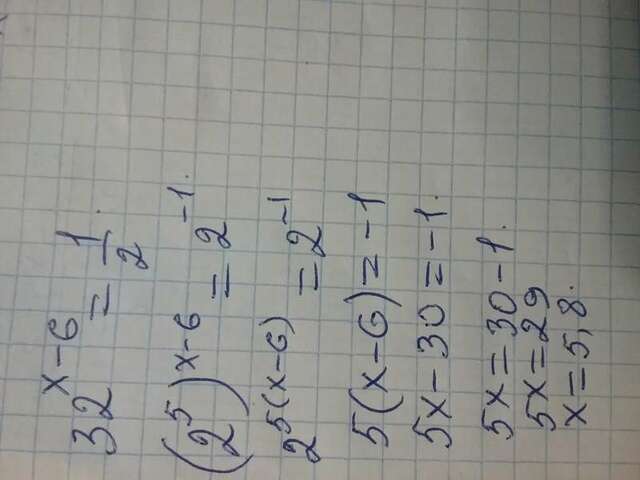 32^(x-6) = 1/2.
(2^5)^(x-6) = 2^(-1).
2^(5(x-6)) = 2^(-1)
5(x-6) = -1
5x - 30 = -1.
5x = 30 - 1.
5x = 29
x = 5,8.